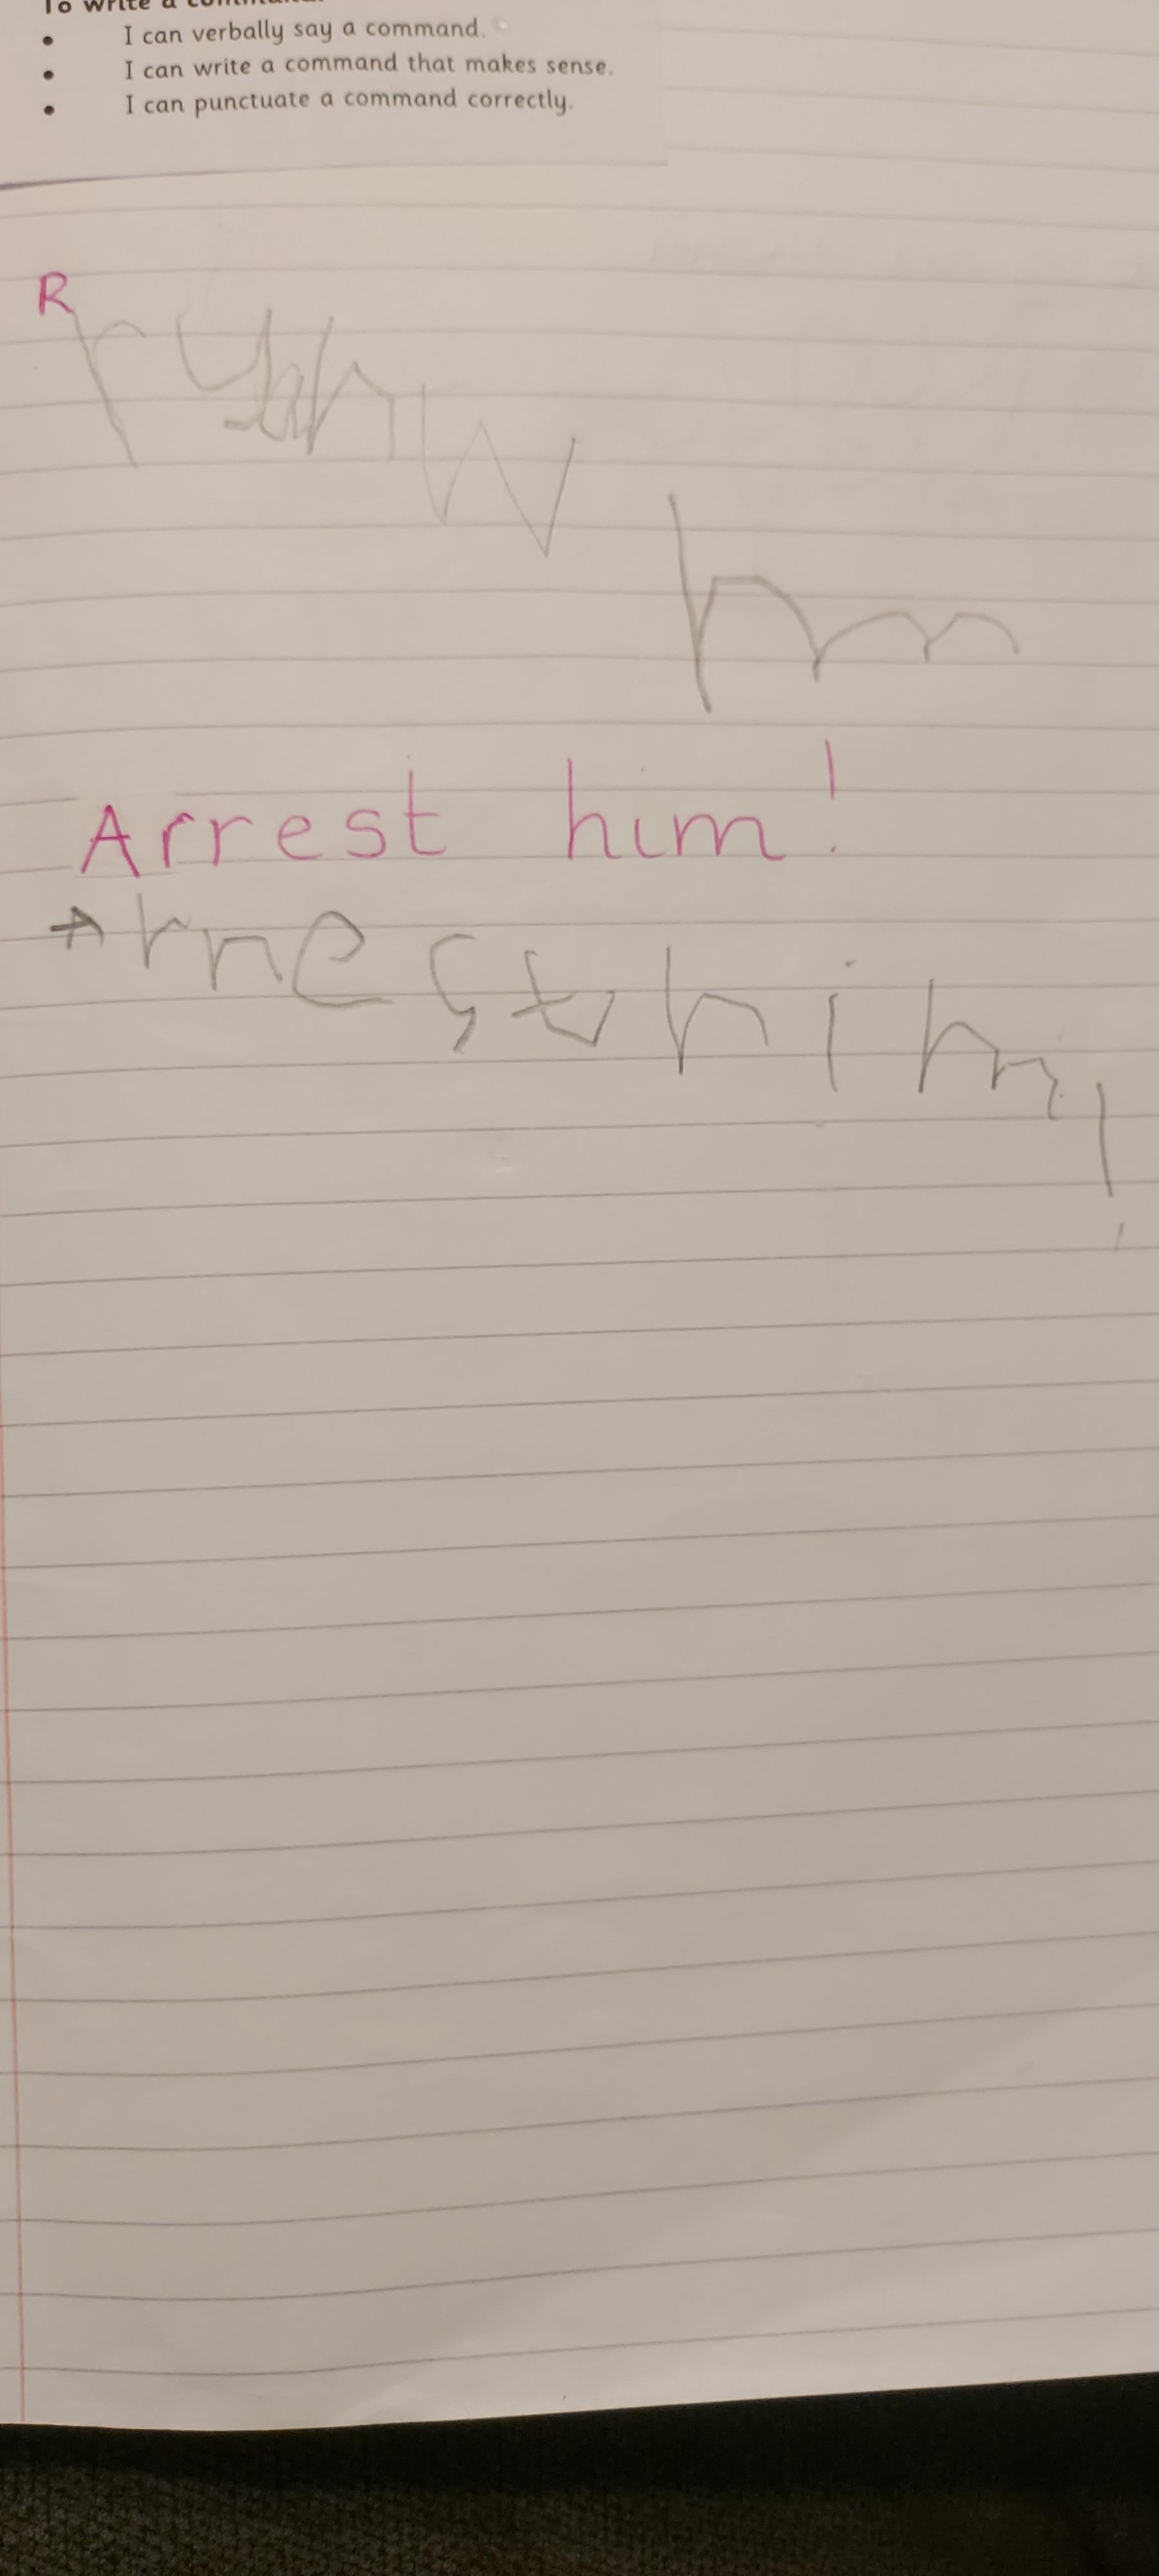 To write a command.
I can verbally say a command.
I can write a command that makes sense.
I can punctuate a command correctly.
R
hm
Arrest him!
Arrest him!